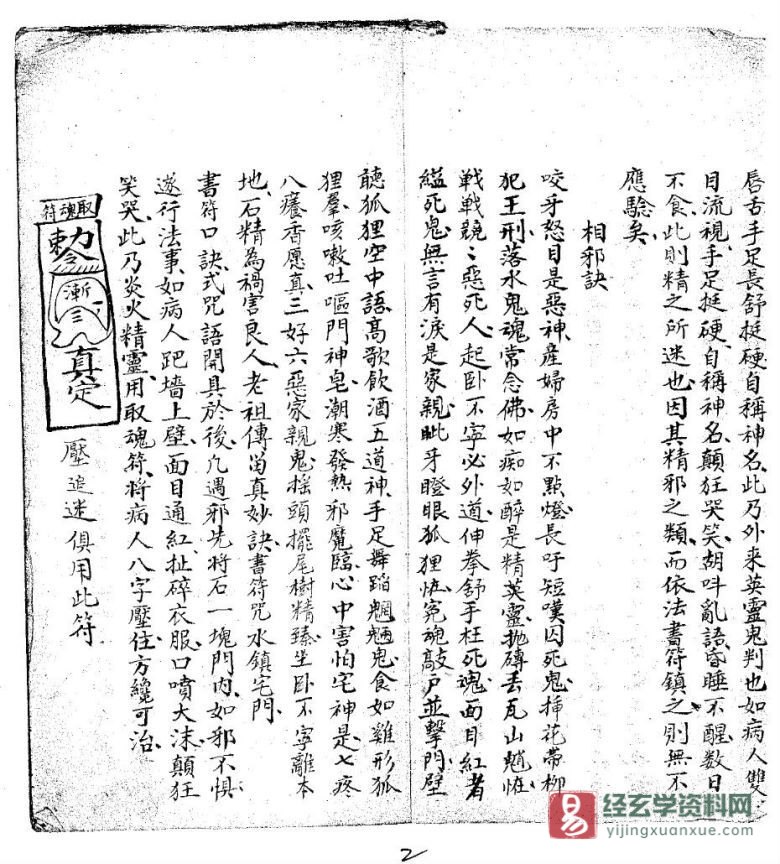 唇舌手足長舒挺硬自稱神名此乃外来英靈鬼判也如病人雙
目流視手足挺硬自稱神名顛狂哭笑胡呌亂語昏睡不醒数日
不食此則精之所迷也因其精邪之類而依法書符鎮之則無不
應驗矣
相邪訣
咬牙怒目是惡神産婦房中不點燈長吁短嘆囚死鬼揷花帶柳
犯王刑落水鬼魂常念佛如痴如醉是精英靈抛磚丢瓦山魈怪
戦戦競〻惡死人起卧不宁必外道伸拳舒手枉死魂面目紅者
縊死鬼無言有淚是家親眦牙瞪眼狐狸怪寃魂敲戶並擊門壁
聽狐狸空中語高歌飲酒五道神手足舞蹈魍魎鬼食如雞形狐
狸羣咳嗽吐嘔門神皂潮寒發熱邪魔臨心中害怕宅神是七疼
八癢香愿真三好六惡家親鬼摇頭擺尾樹精臻坐卧不寧離本
地石精為禍害良人老祖傳留真妙訣書符咒水鎮宅門
書符口訣式咒語開具於後凢遇邪先將石一塊門内如邪不惧
遂行法事如病人跁墙上壁面目通紅扯碎衣服口噴大沫顛狂
笑哭此乃炎火精靈用取魂符將病人八字壓住方纔可治
壓追迷俱用此符
取魂符
勅令
漸
三
真定
易 经玄学资料网
yijingxuanxue.com
2